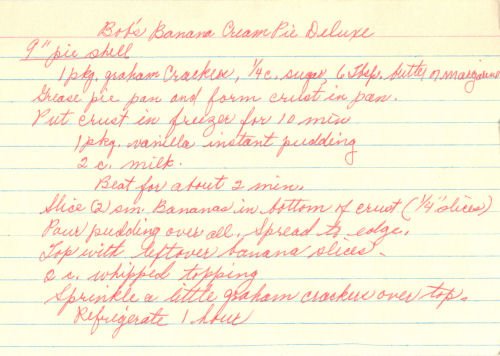 Bob's Banana Cream Pie Deluxe
9" pie shell
1 pkg. graham Crackers, 1/4 c. sugar, 6 Tbsp. butter or margarine
Grease pie pan and form crust in pan.
Put crust in freezer for 10 min
1 pkg. vanilla instant pudding
2 c. milk.
Beat for about 2 min.
Slice 2 sm. Bananas in bottom of crust (1/4" slices)
Pour pudding over all. Spread to edge.
Top with leftover banana slices.
2 c. whipped topping
Sprinkle a little graham crackers over top.
Refrigerate 1 hour